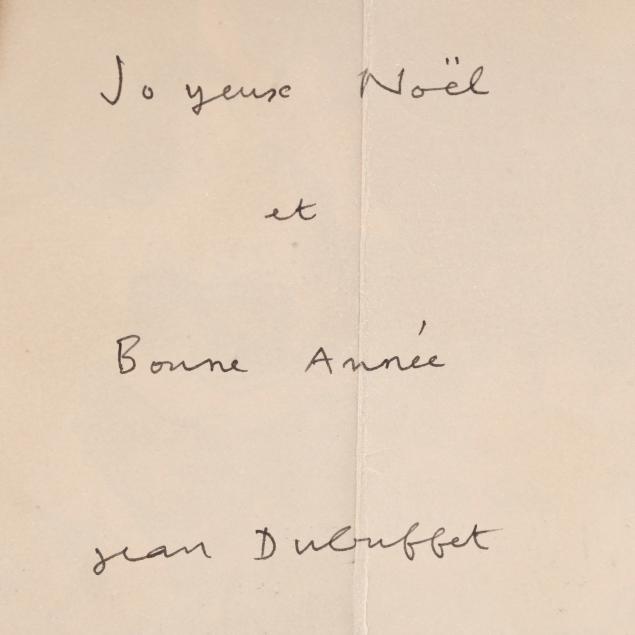 Joyeux Noël
et
Bonne Année
jean Dubuffet